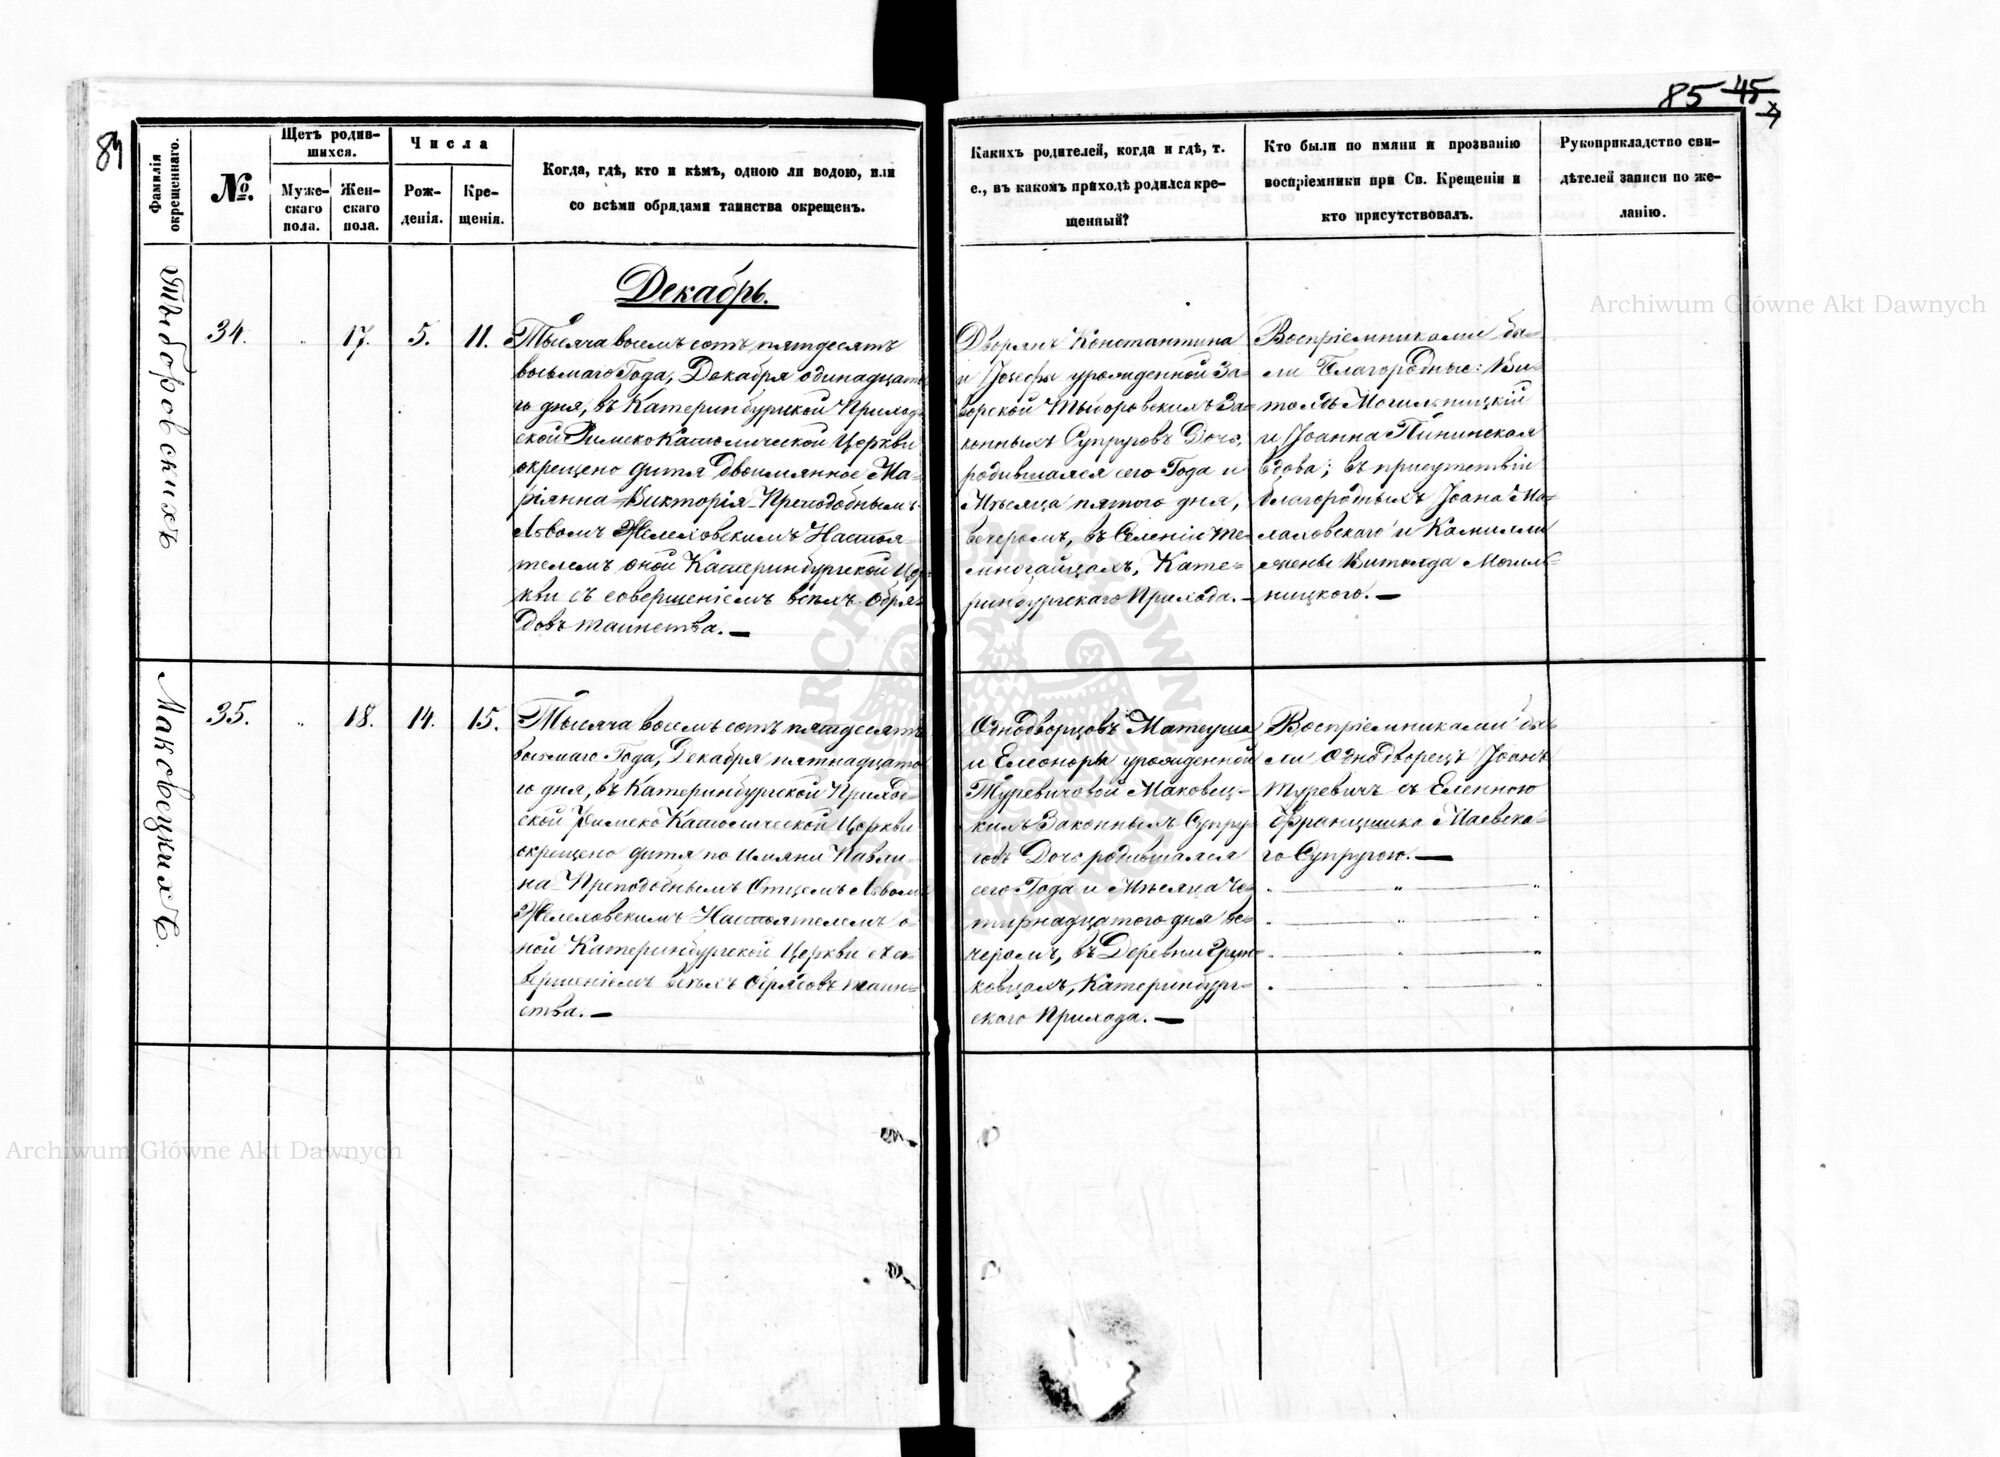 84
85 45
Фамилія окрещеннаго.
№.
Щетъ родив-
шихся.
Муже-
скаго
пола.
Жен-
скаго
пола.
Числа
Рож-
денія.
Кре-
щенія.
Когда, гдѣ, кто и кѣмъ, одною ли водою, или
со всѣми обрядами таинства окрещенъ.
Какихъ родителей, когда и гдѣ, т.
е., въ какомъ приходѣ родился кре-
щенный?
Кто были по имяни и прозванію
воспріемники при Св. Крещеніи и
кто присутствовалъ.
Рукоприкладство сви-
дѣтелей записи по же-
ланію.
Декабрь.
Тыборовскихъ
34. " 17. 5. 11.
Тысяча восемьсотъ пятдесятъ
восьмаго Года, Декабря одинадцата-
го дня, въ Катеринбургской Приход-
ской Римско Католической Церкви
окрещено дитя двоимянное Ма-
ріянна-Викторія Преподобнымъ
Львомъ Желеховскимъ Настоя-
телемъ оной Катеринбургской Цер-
кви съ совершеніемъ всѣхъ обря-
довъ таинства. —
Дворянъ Константина
и Іозефы урожденной За-
горской Тыборовскихъ За-
конныхъ Супруговъ Дочь,
родившаяся сего Года и
Мѣсяца пятого дня,
вечеромъ, въ Селеніи Те-
многайцахъ, Кате-
ринбургскаго Прихода. —
Воспріемниками бы-
ли Благородные: Ви-
толдъ Могильницкій
и Іоанна Пининская
вдова; въ присутствіи
Благородныхъ Іоана Ма-
лаховскаго и Камилли
жены Витолда Могиль-
ницкого. —
Маковецкихъ.
35. " 18. 14. 15.
Тысяча восемьсотъ пятдесятъ
восьмаго Года, Декабря пятнадцато-
го дня, въ Катеринбургской Приход-
ской Римско Католической Церкви
окрещено дитя по имяни Павли-
на Преподобнымъ Отцемъ Львомъ
Желеховскимъ Настоятелемъ о-
ной Катеринбургской Церкви съ со-
вершеніемъ всѣхъ обрядовъ таин-
ства. —
Однодворцовъ Матеуша
и Елеоноры урожденной
Туревичовой Маковец-
кихъ Законныхъ Супру-
говъ Дочь родившаяся
сего Года и Мѣсяца че-
тырнадцатого дня ве-
черомъ, въ Деревни Грин-
ковцахъ, Катеринбург-
скаго Прихода. —
Воспріемниками бы-
ли Однодворецъ Іоанъ
Туревичъ съ Еленною
Францишка Маевска-
го Супругою. —
Archiwum Główne Akt Dawnych
Archiwum Główne Akt Dawnych